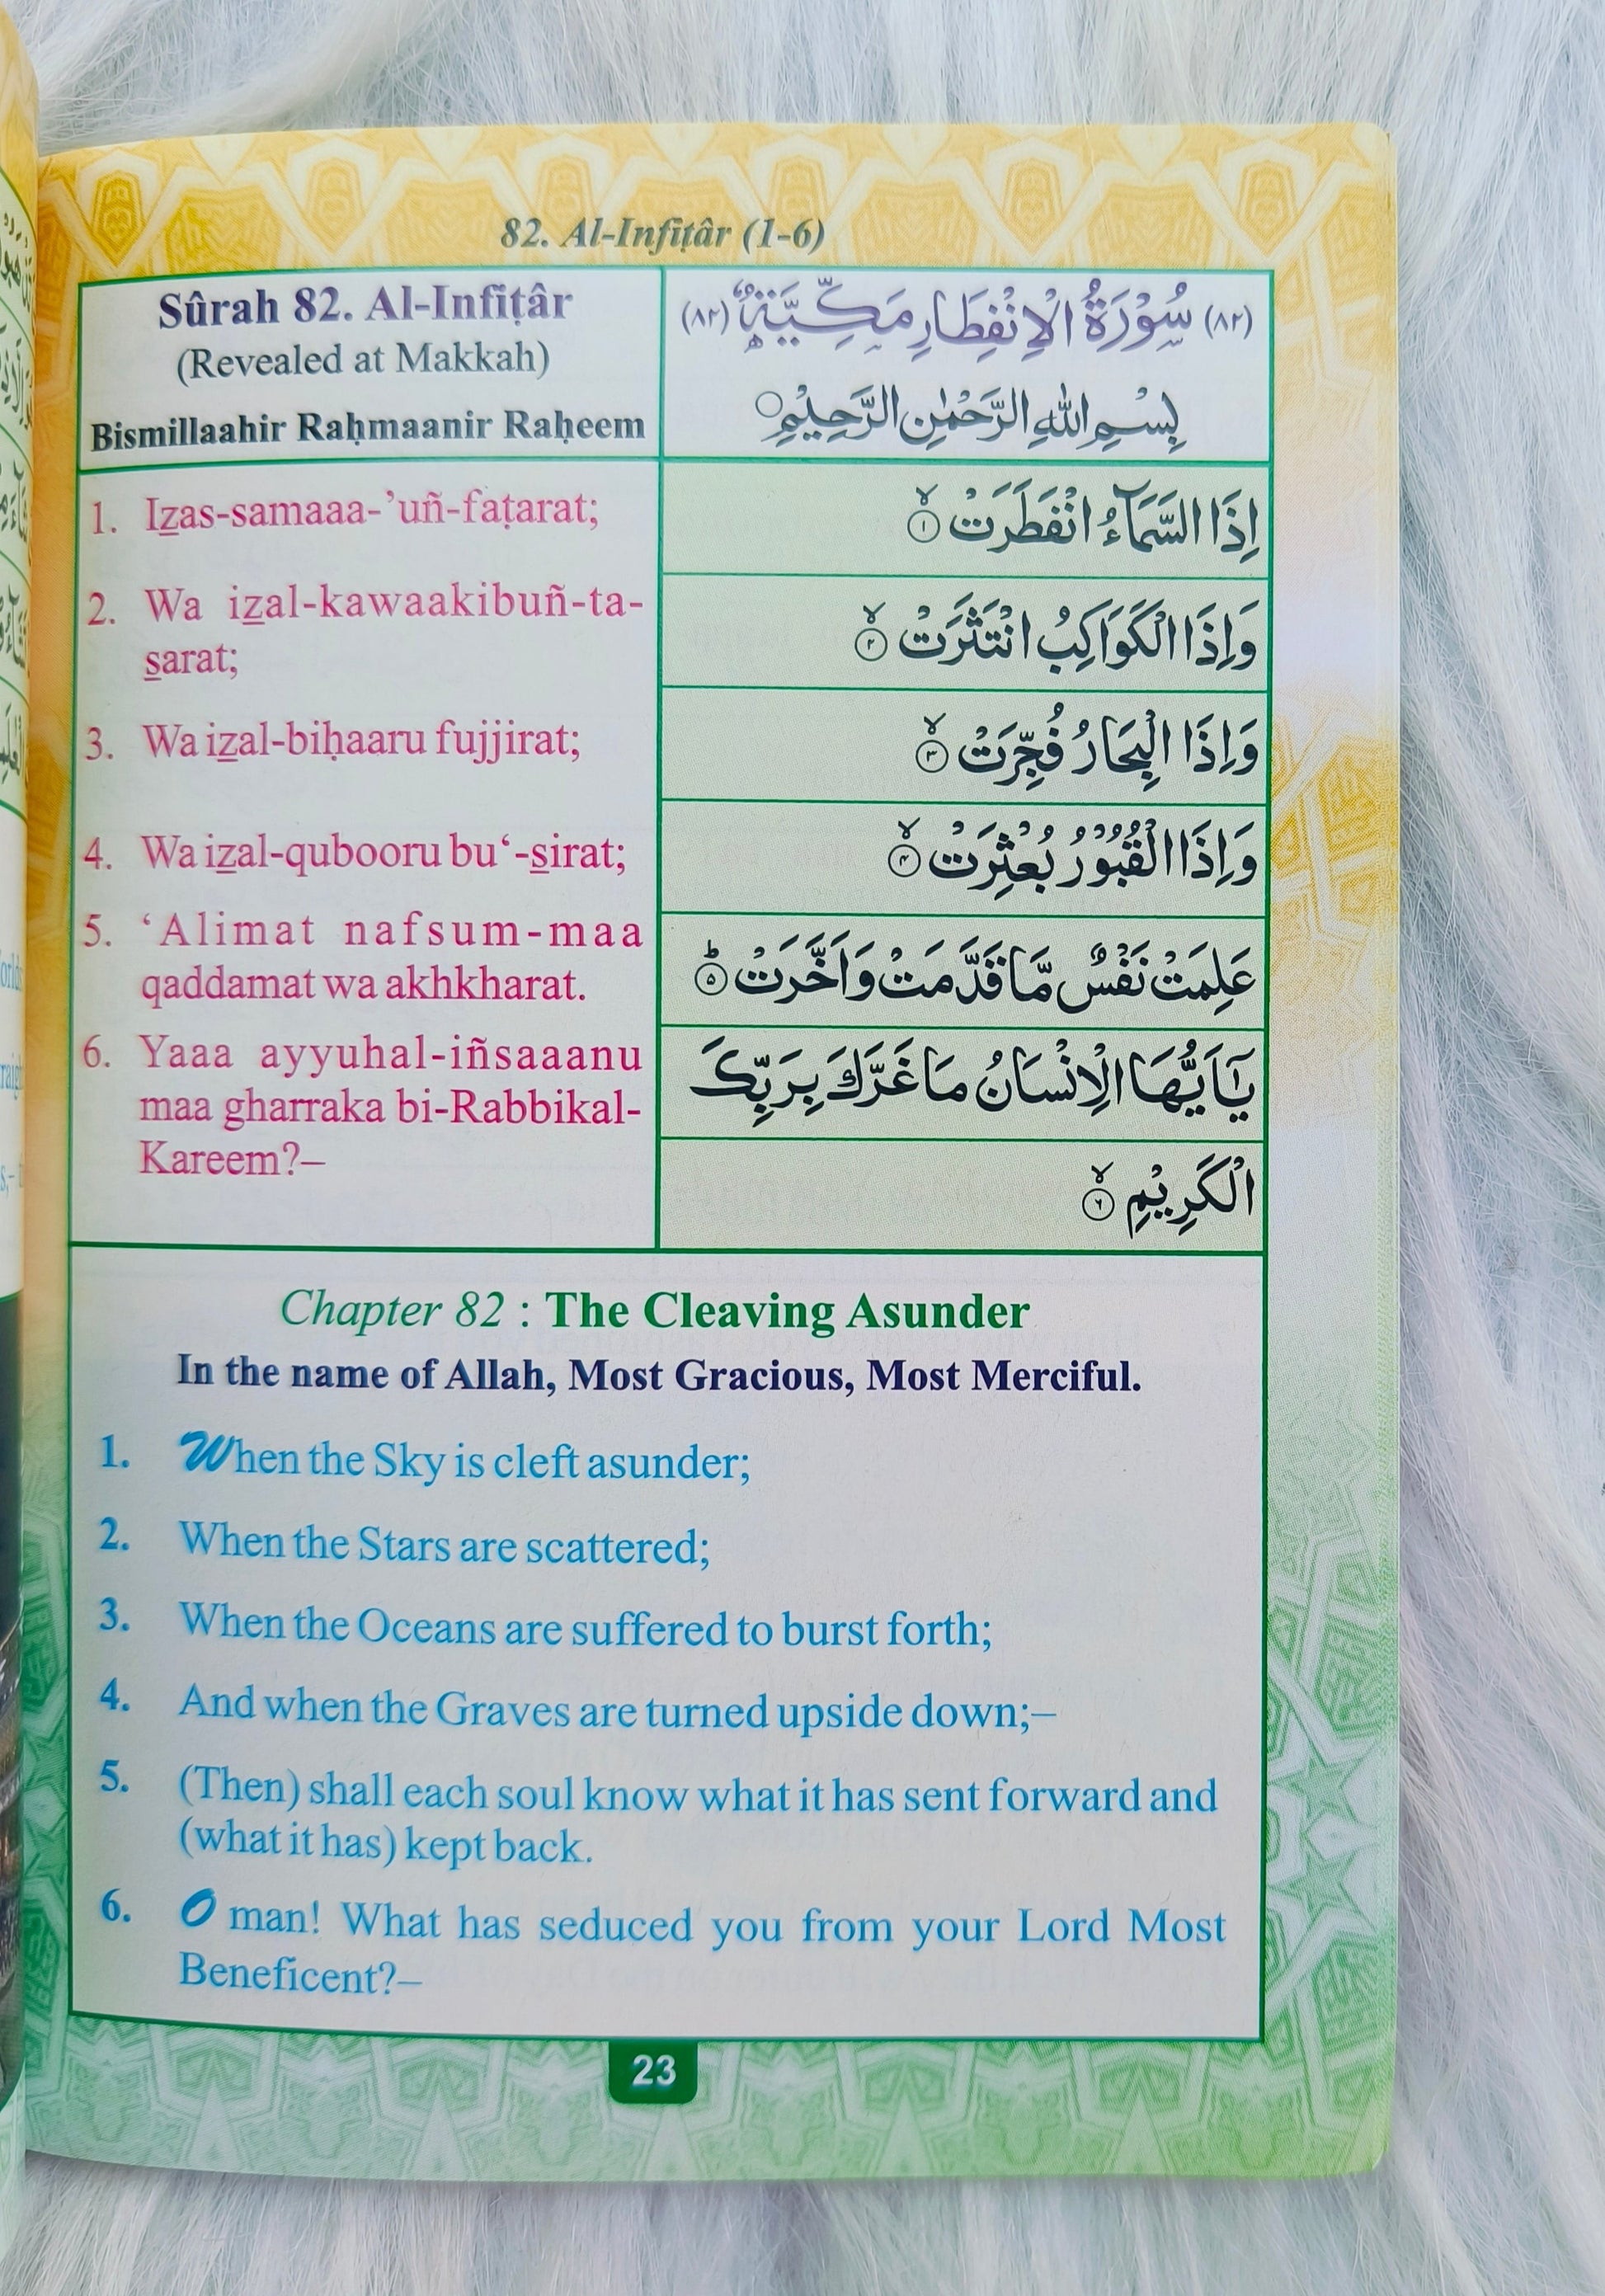 82. Al-Infiṭâr (1-6)
Sûrah 82. Al-Infiṭâr
(Revealed at Makkah)
Bismillaahir Raḥmaanir Raḥeem
(٨٢) سُوْرَةُ الْاِنْفِطَارِ مَكِّيَّةٌ (٨٢)
بِسْمِ اللهِ الرَّحْمٰنِ الرَّحِيْمِ
1. Izas-samaaa-’uñ-faṭarat;
2. Wa izal-kawaakibuñ-ta-
sarat;
3. Wa izal-biḥaaru fujjirat;
4. Wa izal-qubooru bu‘-sirat;
5. ‘Alimat nafsum-maa
qaddamat wa akhkharat.
6. Yaaa ayyuhal-iñsaaanu
maa gharraka bi-Rabbikal-
Kareem?–
اِذَا السَّمَآءُ انْفَطَرَتْ ۙ ١
وَاِذَا الْكَوَاكِبُ انْتَثَرَتْ ۙ ٢
وَاِذَا الْبِحَارُ فُجِّرَتْ ۙ ٣
وَاِذَا الْقُبُوْرُ بُعْثِرَتْ ۙ ٤
عَلِمَتْ نَفْسٌ مَّا قَدَّمَتْ وَاَخَّرَتْ ؕ ٥
يٰٓاَيُّهَا الْاِنْسَانُ مَا غَرَّكَ بِرَبِّكَ
الْكَرِيْمِ ۙ ٦
Chapter 82 : The Cleaving Asunder
In the name of Allah, Most Gracious, Most Merciful.
1. When the Sky is cleft asunder;
2. When the Stars are scattered;
3. When the Oceans are suffered to burst forth;
4. And when the Graves are turned upside down;–
5. (Then) shall each soul know what it has sent forward and
(what it has) kept back.
6. O man! What has seduced you from your Lord Most
Beneficent?–
23